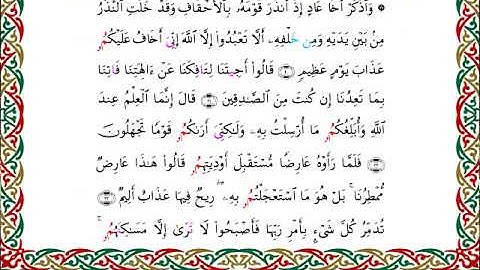 ۞ وَاذْكُرْ أَخَا عَادٍ إِذْ أَنذَرَ قَوْمَهُۥ بِالْأَحْقَافِ وَقَدْ خَلَتِ النُّذُرُ
مِنۢ بَيْنِ يَدَيْهِ وَمِنْ خَلْفِهِۦٓ أَلَّا تَعْبُدُوٓا۟ إِلَّا اللَّهَ إِنِّيَ أَخَافُ عَلَيْكُمُۥ
عَذَابَ يَوْمٍ عَظِيمٍ ۝٢٠ قَالُوٓا۟ أَجِيتَنَا لِتَافِكَنَا عَنْ ءَالِهَتِنَا فَاتِنَا
بِمَا تَعِدُنَآ إِن كُنتَ مِنَ الصَّٰدِقِينَ ۝٢١ قَالَ إِنَّمَا الْعِلْمُ عِندَ
اللَّهِ وَأُبَلِّغُكُمُۥ مَآ أُرْسِلْتُ بِهِۦ وَلَٰكِنِّيَ أَرَىٰكُمُۥ قَوْمًا تَجْهَلُونَ
۝٢٢ فَلَمَّا رَأَوْهُ عَارِضًا مُّسْتَقْبِلَ أَوْدِيَتِهِمُۥ قَالُوا۟ هَٰذَا عَارِضٌ
مُّمْطِرُنَا ۚ بَلْ هُوَ مَا اسْتَعْجَلْتُمُۥ بِهِۦ ۖ رِيحٌ فِيهَا عَذَابٌ أَلِيمٌ ۝٢٣
تُدَمِّرُ كُلَّ شَيْءٍۭ بِأَمْرِ رَبِّهَا فَأَصْبَحُوا۟ لَا تَرَىٰٓ إِلَّا مَسَٰكِنَهُمُۥ ۚ